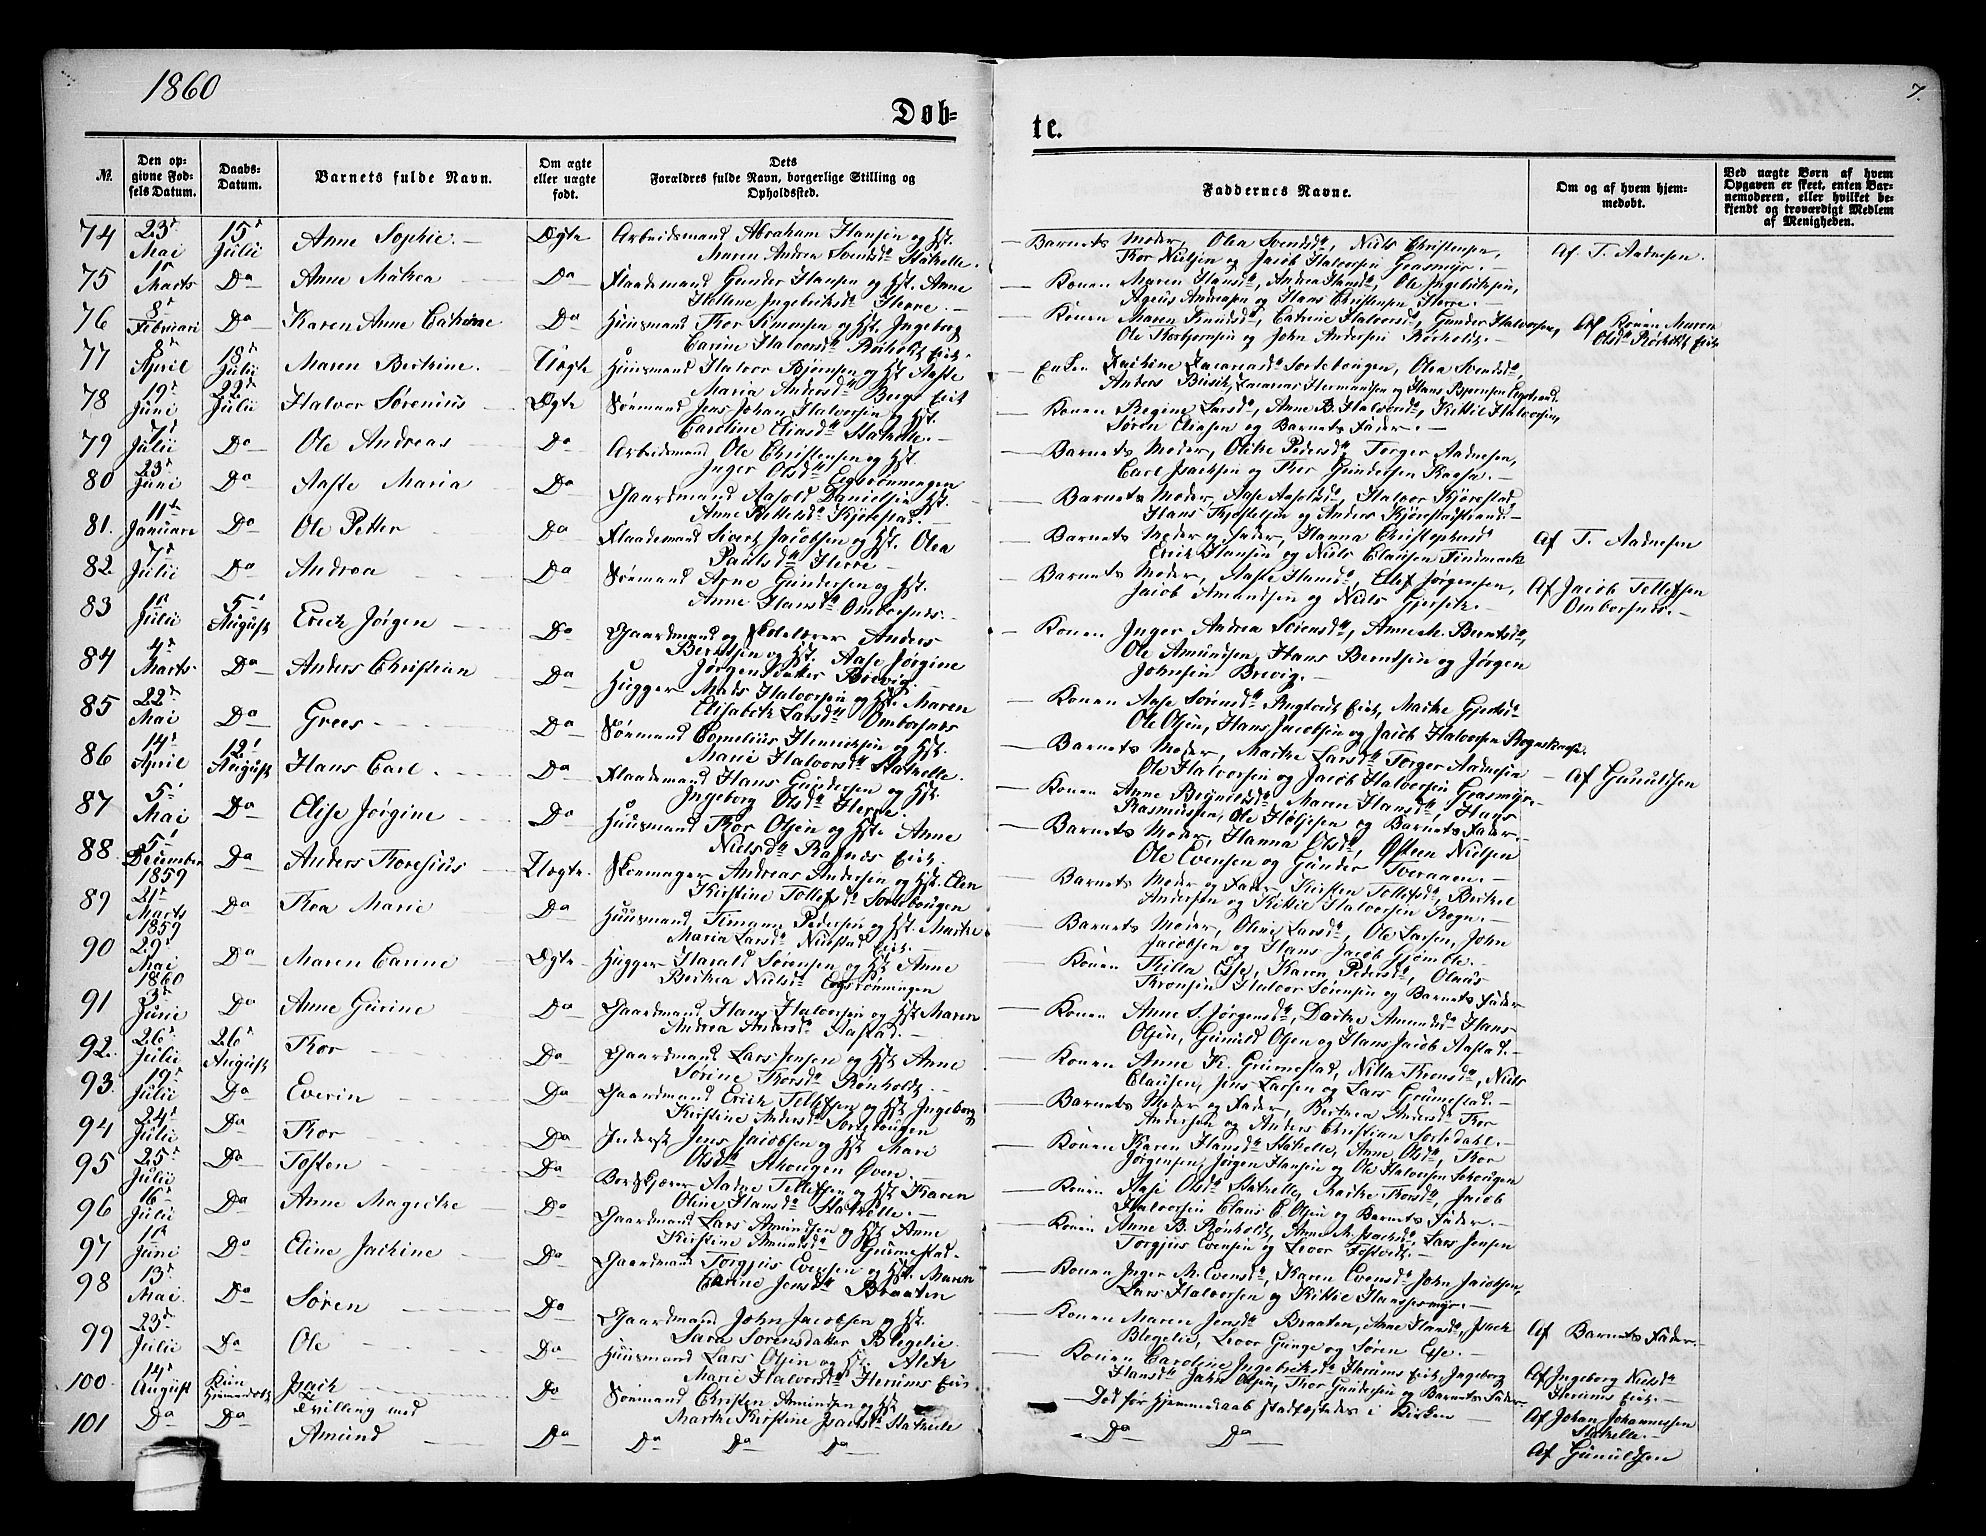 1860
7.
Døb=
te.
№.
Den op-
givne Fød-
sels Datum.
Daabs-
Datum.
Barnets fulde Navn.
Om ægte
eller uægte
født.
Dets
Forældres fulde Navn, borgerlige Stilling og
Opholdssted.
Faddernes Navne.
Om og af hvem hjem-
medøbt.
Ved uægte Børn af hvem
Opgaven er skeet, enten Bar-
nemoderen, eller hvilket be-
kjendt og troværdigt Medlem
af Menigheden.
74 23de Mai 15de Julii Anne Sophie. Ægte Arbeidsmand Abraham Hansen og Hst.
Maren Andrea Svendsd. Stathelle.
Barnets Moder, Olea Svendsd., Niels Christensen,
Thor Nielsen og Jacob Halvorsen Grasmyr.
Af T. Aadnesen.
75 1ste Marts Do Anne Mathea Do Flaademand Gunder Hansen og Hst. Anne
Hellene Ingebrektsd. Herre.
Konen Maren Hansd., Andrea Hansd., Ole Ingebrektsen,
Andresen og Hans Christensen Herre.
76 8de Februari Do Karen Anne Cathrine Do Huusmand Thor Simonsen og Hst. Ingeborg
Carine Halvorsd. Rørholt Eie.
Konen Maren Knudsd., Catrine Halvorsd., Gunder Halvorsen,
Ole Thorbjørnsen og John Andersen Rørholt.
Af Konen Maren
Olsd. Rørholt Eie
77 8de April 18de Julii Maren Bertine. Uægte Huusmand Halvor Bjørnsen og Hst. Aaste
Maria Andersd. Berge Eie
Enken Zachariasd. Sortebougen, Olea Svendsd.,
Anders Zacarias Hermandsen og Hans Bjørnsen
78 19de Juni 22de Julii Halvor Sørenius Ægte Sømand Jens Johan Halvorsen og Hst.
Caroline Eliasd. Stathelle.
Konen Regine Larsd., Anne B. Halvorsd., Kittil Halvorsen,
Søren Eliasen og Barnets Fader.
79 7de Julii Do Ole Andreas Do Arbeidsmand Ole Christensen og Hst.
Inger Olsd.
Barnets Moder, Pedersd., Torger Aadnesen,
Carl Isachsen og Thor Gundersen
80 23de Juni Do Aaste Maria Do Gaardmand Aasold Danielsen Hst.
Anne Kittelsd. Kjørstad.
Barnets Moder, Aase Aasoldsd., Halvor Kjørestad
Hans og Anders Kjørestadstrand.
81. 11te Januari Do Ole Petter Do Flaademand Jacobsen og Hst. Olea
Paulsd. Herre
Barnets Moder og Fader, Hanna Christophersd.
Erik Hansen og Niels Clausen Findmark
Af T. Aadnesen
82. 7de Julii Do Andrea Do Sømand Arne Gundersen og Hst.
Anne Hansd. Omborsnes.
Barnets Moder, Aaste Hansd., Elef Jørgensen,
Jacob Amundsen og Niels
Af Jacob Tellefsen
Omborsnes.
83 1ste Julii 5te August Erich Jørgen Do Gaardmand og Skolelærer Anders
Berntsen og Hst. Aase Jørgine
Jørgensdatter Brevig.
Konen Inger Andrea Sørensd., Anne M. Berntsd.,
Ole Amundsen, Hans Berntsen og Jørgen
Johnsen Brevig.
84 4de Marts Do Anders Christian Do Hugger Mads Halvorsen og Hst. Maren
Elisabeth Larsd. Omborsnes
Konen Aase Sørensd. Eie, Marthe
Ole Olsen, Hans Jacobsen og Jacob Halvorsen
85 22de Mai Do Grees Do Sømand Cornelius Henriksen og Hst.
Marie Halvorsd. Stathelle.
Barnets Moder, Marthe Larsd. Torger Aadnesen
Ole Halvorsen og Jacob Halvorsen Grasmyr.
86 14de April 12te August Hans Carl Do Flaademand Hans Gundersen og Hst.
Ingeborg Olsd. Herre.
Konen Anne Maren Hansd., Hans
Rasmussen, Ole og Barnets Fader.
Af Gunuldsen
87 5te Mai Do Elise Jørgine Do Huusmand Thor Olsen og Hst. Anne
Nielsd. Rafnes Eie.
Barnets Moder, Hanna Olsd., Osten Nielsen
Ole Evensen og Gunder Tveraaen.
88. 5te December 1859 Do Anders Thoresius Uægte. Skomager Andreas Andersen og Hst. Elen
Kirstine Tollefsd. Sortebougen
Barnets Moder og Fader, Kirsten Tollefsd., Berthel
Andersen og Kittil Halvorsen Rogn.
89 21de Marts 1859 Do Thea Marie Do Huusmand Timann Pedersen og Hst. Marthe
Maria Larsd. Nustad Eie.
Barnets Moder, Oline Larsd., Ole Larsen, John
Jacobsen og Hans Jacob
90 29de Mai 1860 Do Maren Carine Ægte Hugger Harald Sørensen og Hst. Anne
Berthea Nielsd.
Konen Esse, Karen Pedersd., Olaus
Tronsen, Halvor Sørensen og Barnets Fader
91 3de Junii Do Anne Gurine Do Gaardmand Hans Halvorsen og Hst. Maren
Andrea Andersd. Aastad.
Konen Anne S. Jørgensd., Dorthe Amundsd. Hans
Olsen, Gunuld Olsen og Hans Jacob Aastad.
92. 26de Julii 26de August Thor Do Gaardmand Lars Jensen og Hst. Anne
Sørine Thorsd. Rønholt.
Konen Anne K. Grumestad, Nilla Tronsd., Niels
Clausen, Jens Larsen og Lars Grumestad.
93. 19de Julii Do Everin Do Gaardmand Erich Tellefsen og Hst. Ingeborg
Kirstine Andersd. Sortebougen
Barnets Moder og Fader, Berthea Andersd. Thor
Andersen og Anders Christian Sortedahl.
94 24de Julii Do Thor Do Inderst Jens Jacobsen og Hst. Mari
Olsd. Skougen Øvre.
Konen Karen Hansd. Stathelle, Anne Olsd., Thor
Jørgensen, Jørgen Hansen og Ole Halvorsen Skougen
95 25de Julii Do Tosten Do Bordskjærer Aadne Tellefsen og Hst. Karen
Oline Hansd. Stathelle.
Konen Aase Olsd. Stathelle, Thorsd., Jacob
Halvorsen Claus C. Olsen og Barnets Fader.
96 16de Julii Do Anne Magrethe Do Gaardmand Lars Amundsen og Hst. Anne
Kirstine Amundsd. Grumestad.
Konen Anne B. Rønholt, Anne M. Isachsd., Lars Jensen
Torgjus Evensen og Leoor Tostvedt.
97 1ste Juni Do Eline Jachine Do Gaardmand Torgjus Evensen og Hst. Maren
Carine Jensd. Braaten
Konen Inger M. Evensd., Karen Evensd. John Jacobsen,
Lars Halvorsen og Kittil
98 13de Mai. Do Søren Do Gaardmand John Jacobsen og Hst.
Sara Sørensdatter Blegelie.
Konen Maren Jensd. Braaten, Anne Hansd., Isach
Blegelie, Leoor Gunge og Søren Esse.
Af Barnets Fader.
99 23de Julii Do Ole Do Huusmand Lars Olsen og Hst. Aleth
Marie Halvorsd. Herums Eie
Konen Caroline Ingebrektsd. Herums Eie, Ingeborg
Hansd. John Olsen, Thor Gundersen og Barnets Fader
Af Ingeborg Nielsd.
Herums Eie.
100. 14de August Kun Hjemmedøbt Isach
Tvilling med
Do Sømand Christen Amundsen og Hst.
Marthe Kirstine Isachsd. Stathelle
Død før Hjemmedaab stadfæstedes i Kirken
Af Johan Johannesen
Stathelle.
101 Do Do Amund Do Do Do Do
Do Do
Af Gunuldsen